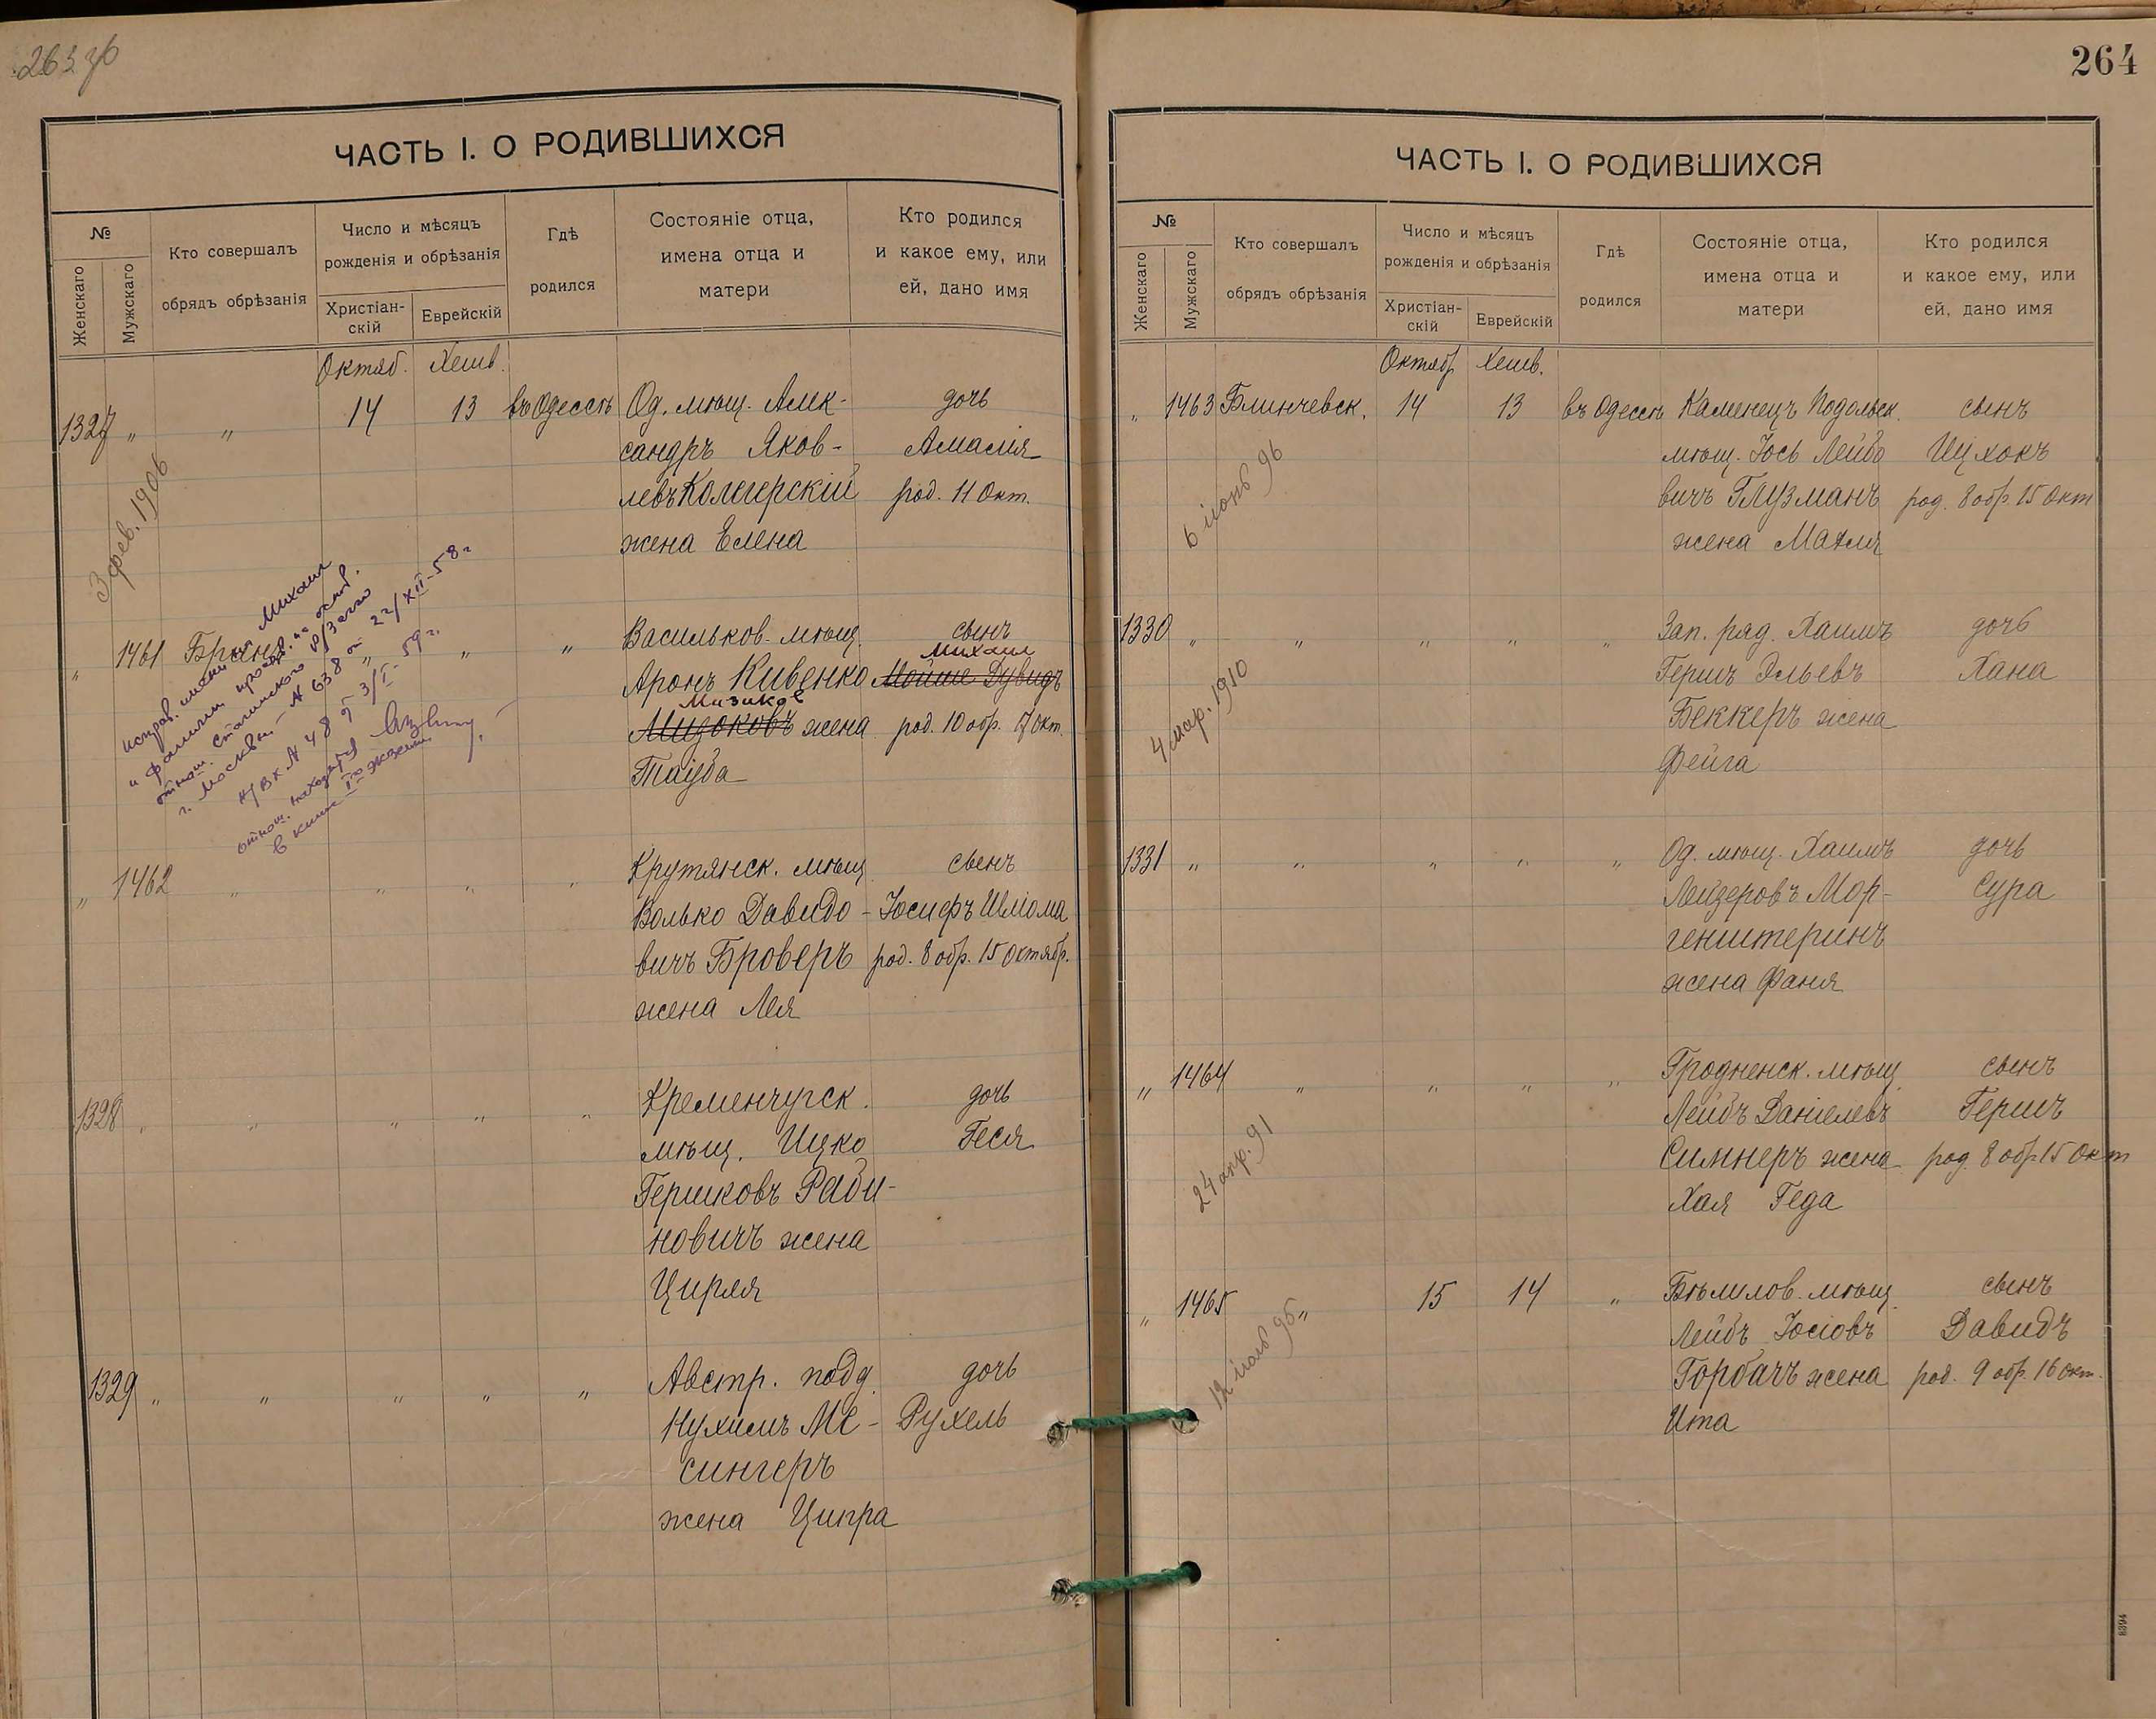 263 зб
ЧАСТЬ I. О РОДИВШИХСЯ
№
Женскаго
Мужскаго
Кто совершалъ
обрядъ обрѣзанія
Число и мѣсяцъ
рожденія и обрѣзанія
Христіан-
скій
Еврейскій
Гдѣ
родился
Состояніе отца,
имена отца и
матери
Кто родился
и какое ему, или
ей, дано имя
Октяб. Хешв.
1327 „ „ 14 13 въ Одессѣ Од. мѣщ. Алек- дочь
сандръ Яков- Амалія
левъ род. 11 Окт.
жена Елена
3 фев. 1906
„ 1461 „ „ „ Васильков. мѣщ. сынъ
Михаил
Аронъ Кивенко Мойше Дувидъ
Мизиков
Мизоковъ жена род. 10 обр. 17 окт.
Тауба
исправ. имени на Михаил
и фамилии на основ.
отнош. Сталинского р/загс
г. Москвы № 638 от 22/XII-58 г.
Н/Вх № 48 от 3/I-59 г.
отнош. находится
в книге экземп.
„ 1462 „ „ „ „ Крутянск. мѣщ. сынъ
Волько Давидо- Іосифъ Шлома
вичъ Броверъ род. 8 обр. 15 октябр.
жена Лея
1328 „ „ „ „ „ Кременчугск. дочь
мѣщ. Ицко Геся
Гершковъ Раби-
новичъ жена
Цирля
1329 „ „ „ „ „ Австр. подд. дочь
Нухимъ Ме- Рухель
сингеръ
жена Ципра
264
ЧАСТЬ I. О РОДИВШИХСЯ
№
Женскаго
Мужскаго
Кто совершалъ
обрядъ обрѣзанія
Число и мѣсяцъ
рожденія и обрѣзанія
Христіан-
скій
Еврейскій
Гдѣ
родился
Состояніе отца,
имена отца и
матери
Кто родился
и какое ему, или
ей, дано имя
Октябр Хешв.
„ 1463 Блинчевск. 14 13 въ Одессѣ Каменецъ Подольск. сынъ
мѣщ. Іось Лейбо Ицхокъ
вичъ Глузманъ род. 8 обр. 15 Окт
жена Махля
6 іюнь 96
1330 „ „ „ „ „ Зап. ряд. Хаимъ дочь
Гершъ Эльевъ Хана
Беккеръ жена
Фейга
4 мар. 1910
1331 „ „ „ „ „ Од. мѣщ. Хаимъ дочь
Лейзеровъ Мор- Сура
генштернъ
жена Фаня
„ 1464 „ „ „ „ Гродненск. мѣщ. сынъ
Лейбъ Даніелевъ Гершъ
Симнеръ жена род. 8 обр 15 Окт
Хая Геда
24 апр. 91
„ 1465 „ 15 14 „ Бѣлилов. мѣщ. сынъ
Лейбъ Іосіовъ Давидъ
Горбачъ жена род. 9 обр. 16 окт.
Ита
12 іюль 95
8394